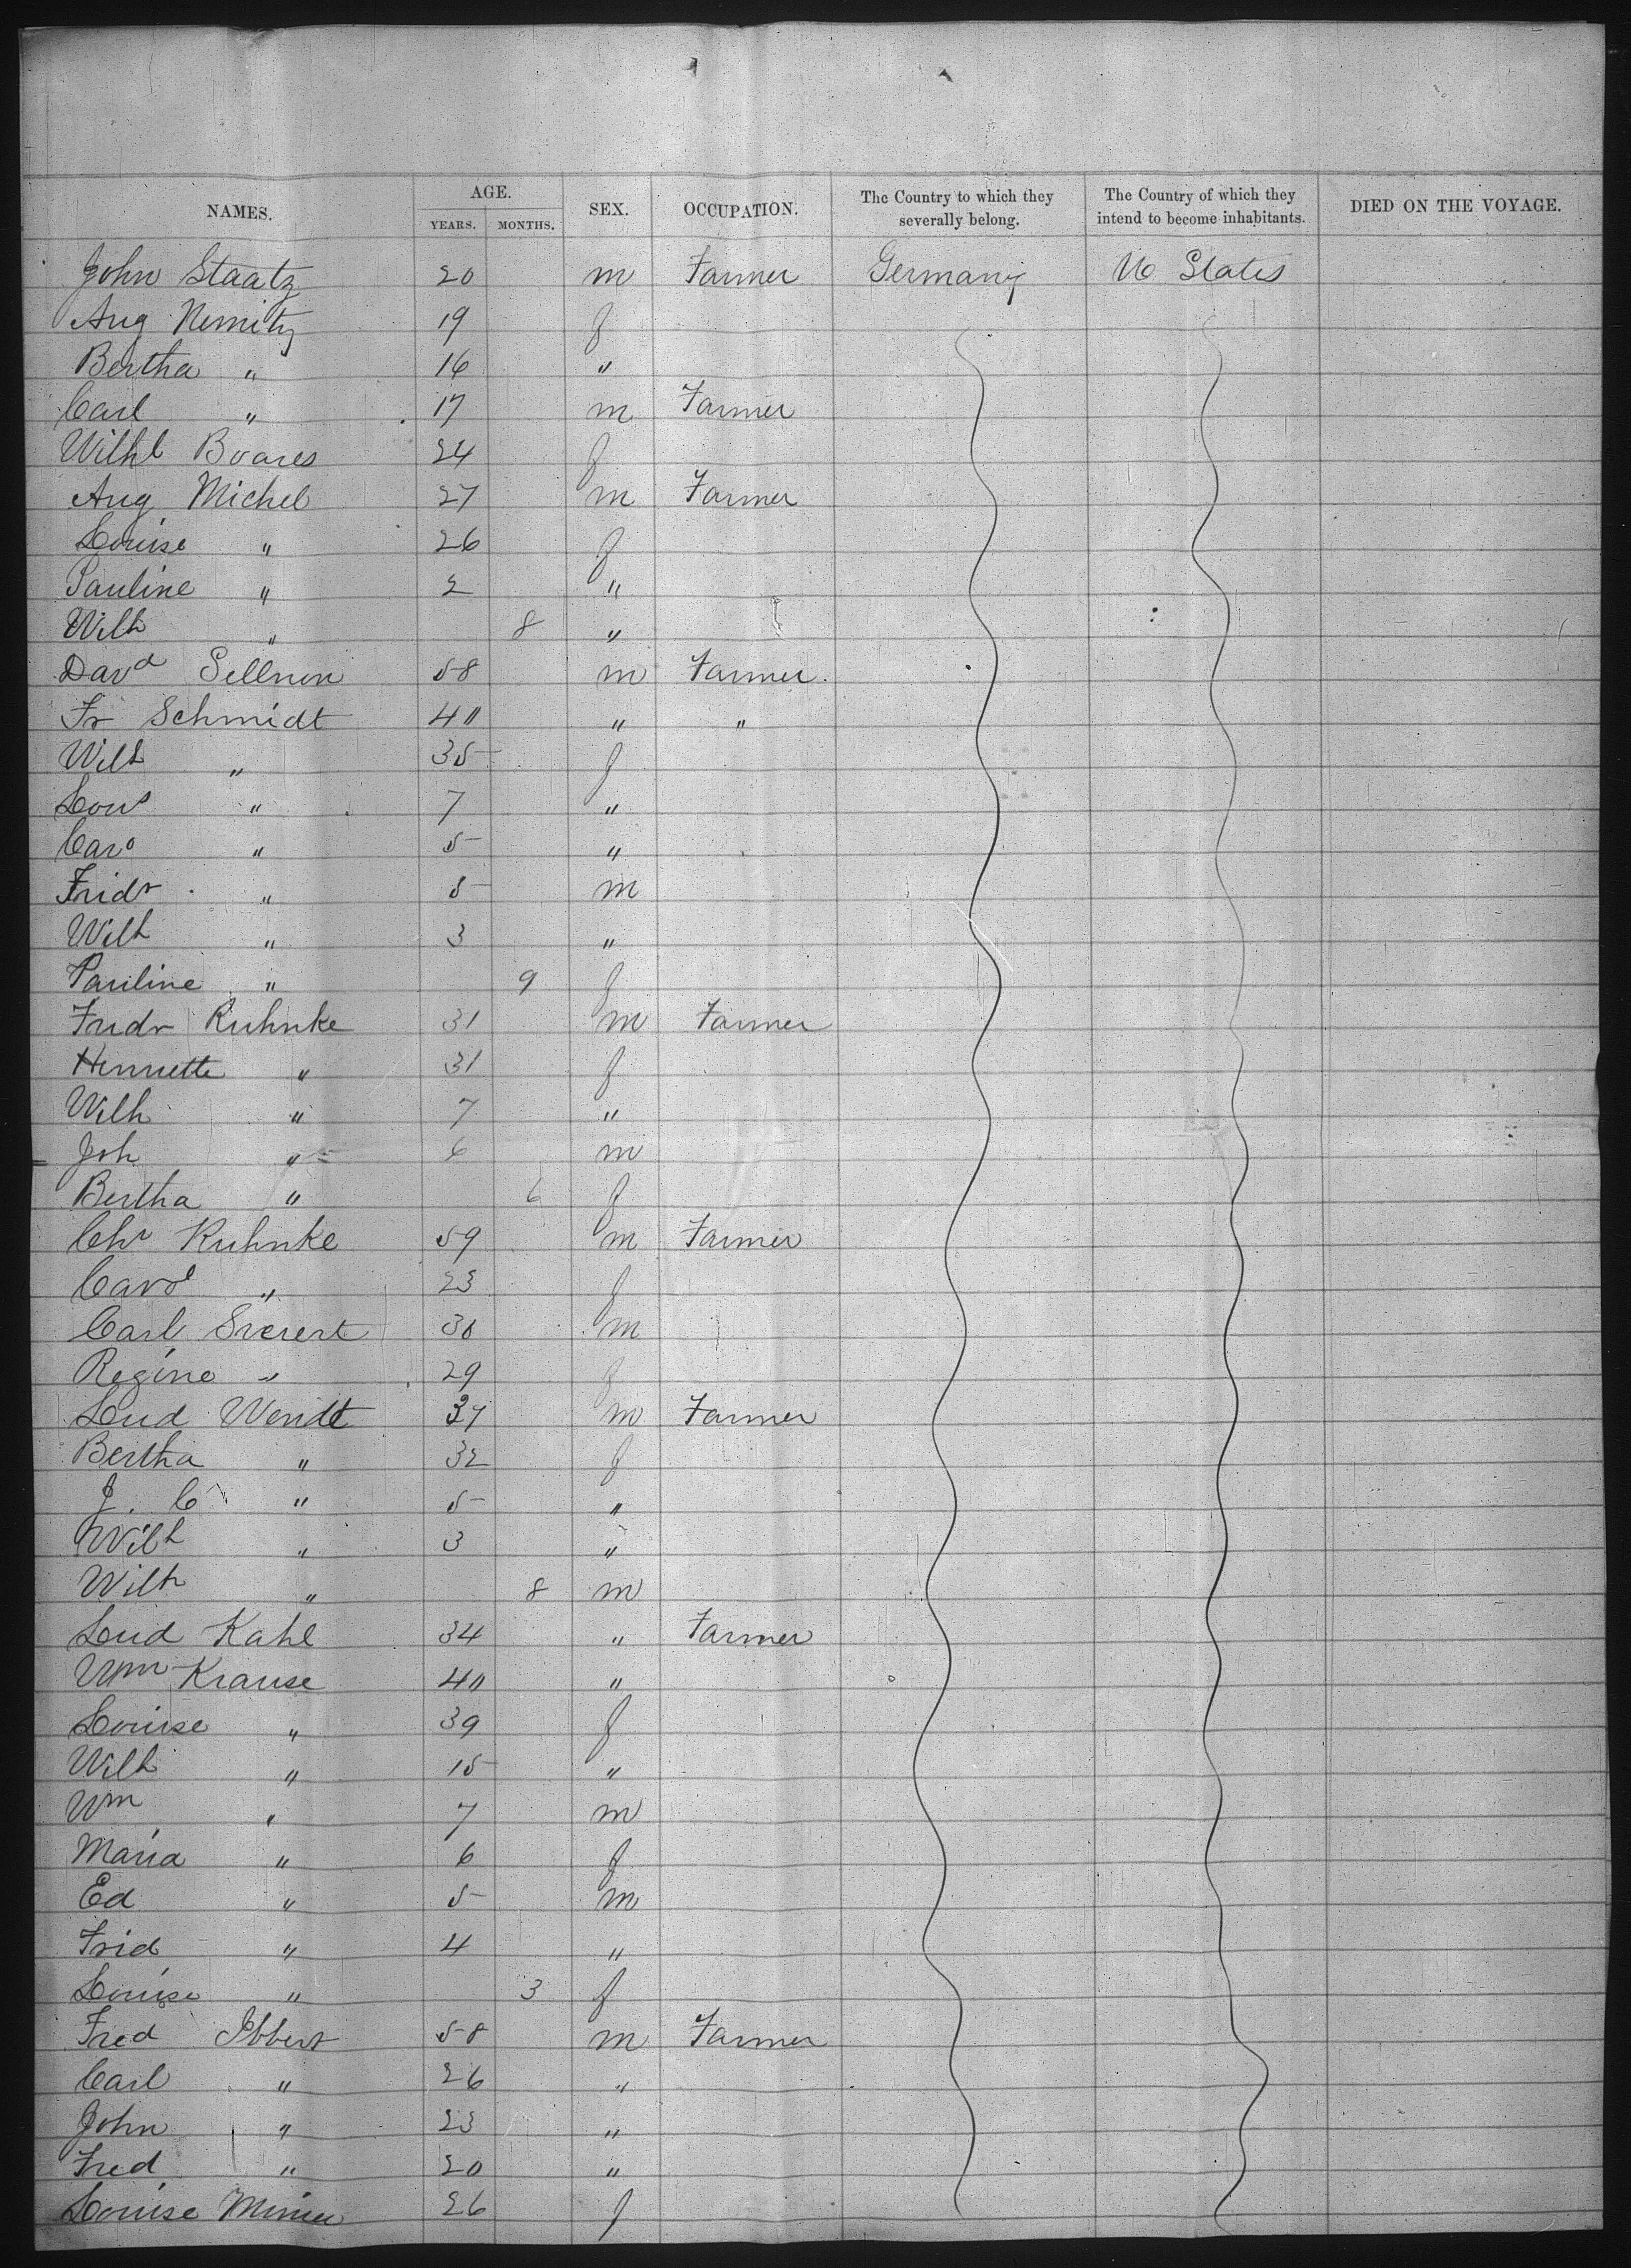 NAMES. AGE. SEX. OCCUPATION. The Country to which they severally belong. The Country of which they intend to become inhabitants. DIED ON THE VOYAGE.
YEARS. MONTHS.
John Staatz 20 m Farmer Germany U States
Aug Nemitz 19 f
Bertha " 16 "
Carl " 17 m Farmer
Wilhl Boares 24 f
Aug Michel 27 m Farmer
Louise " 26 f
Pauline " 2 "
Wilh " 8 "
Davd Sellnon 58 m Farmer
Fr Schmidt 40 " "
Wilh " 35 f
Lous " 7 "
Caro " 5 "
Fridr " 5 m
Wilh " 3 "
Pauline " 9 f
Fridr Kuhnke 31 m Farmer
Henriette " 31 f
Wilh " 7 "
Joh " 6 m
Bertha " 6 f
Chr Kuhnke 59 m Farmer
Carol " 23 f
Carl 30 m
Regine " 29 f
Lud Wendt 37 m Farmer
Bertha " 32 f
J. C " 5 "
Wilh " 3 "
Wilh " 8 m
Lud Kahl 34 " Farmer
Wm Krause 40 "
Louise " 39 f
Wilh " 15 "
Wm " 7 m
Maria " 6 f
Ed " 5 m
Frid " 4 "
Louise " 3 f
Fred Ibbert 58 m Farmer
Carl " 26 "
John " 23 "
Fred " 20 "
Louise 26 f